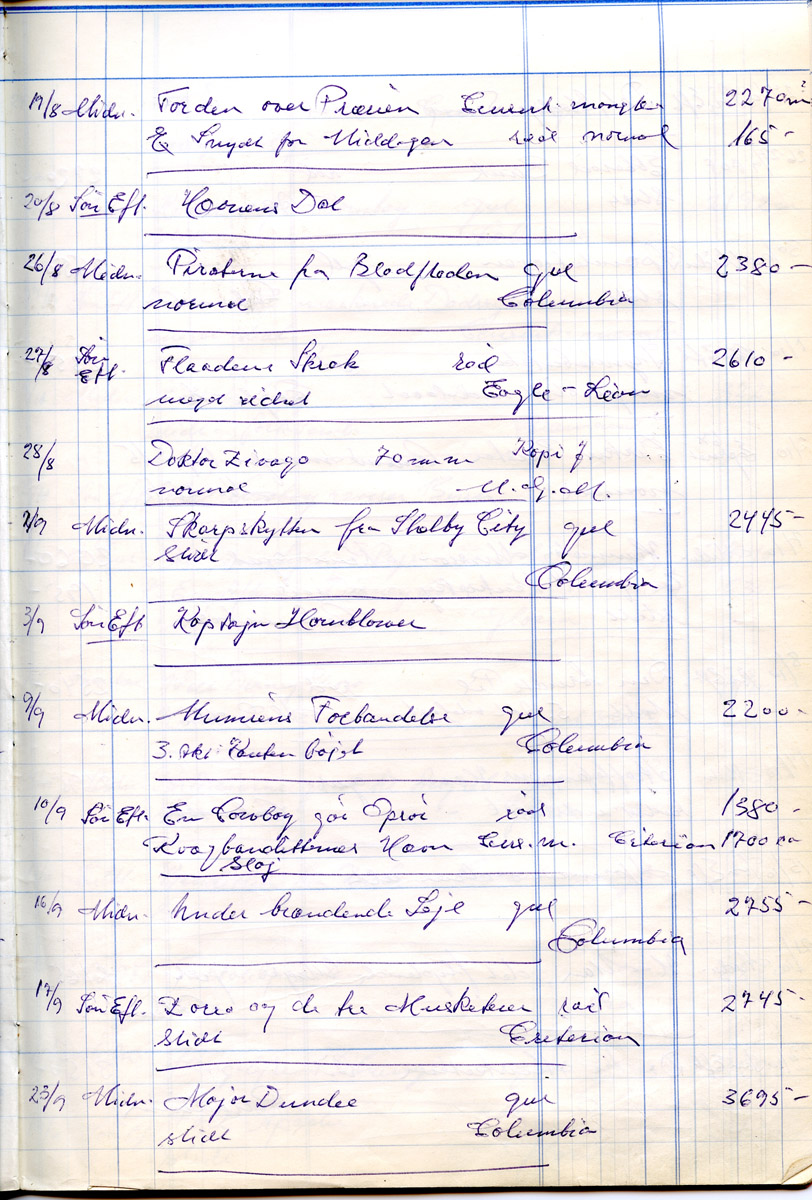 19/8 Midn. Torden over Prærien 2270 m
En Snydt for Middagen rød normal 165 -
20/8 Søn Eft. Havnens Dal
26/8 Midn. Piraterne fra Blodfloden gul 2380 -
normal Columbia
27/8 Søn Eft. Flaadens Skræk rød 2610 -
meget slidt Eagle - Léon
28/8 Doktor Zivago 70 mm Kopi 7
normal M.G.M.
2/9 Midn. Skarpskytten fra Shelby City gul 2445 -
Slidt
Columbia
3/9 Søn Eft Kaptajn Hornblower
9/9 Midn. Mumiens Forbandelse gul 2200 -
3. akt Kanten bøjet Columbia
10/9 Søn Eft. En Cowboy gør Oprør rød 1380 -
Kvægbanditternes Havn m. Criterion 1700 ca
16/9 Midn. Under brændende Sejl gul 2755 -
Columbia
17/9 Søn Eft. Zorro og de tre Musketerer rød 2745 -
Slidt Criterion
23/9 Midn. Major Dundee gul 3695 -
slidt Columbia